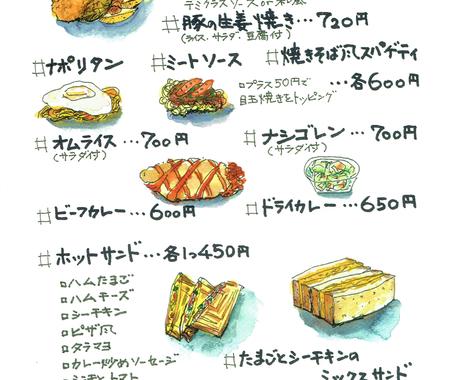 デミグラスソース or 和風
#豚の生姜焼き…720円
(ライス・サラダ・豆腐付)
#ナポリタン #ミートソース #焼きそば風スパゲティ
…各600円
□プラス50円で
目玉焼きをトッピング
#オムライス…700円
(サラダ付)
#ナシゴレン…700円
(サラダ付)
#ビーフカレー…600円
#ドライカレー…650円
#ホットサンド…各1つ450円
□ハムたまご
□ハムチーズ
□シーチキン
□ピザ風
□タラマヨ
□カレー炒めソーセージ
#たまごとシーチキンの
ミックスサンド